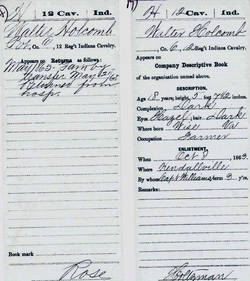 H | 12 Cav. | Ind.
Walter Holcomb
Pvt., Co. C, 12 Reg't Indiana Cavalry.
Appears on Returns as follows:
May/65 Gain by
transfr. May 62/65
from
hosp.
Book mark
Rose
H | 12 Cav. | Ind.
Walter Holcomb
Co. C, 12 Reg't Indiana Cavalry.
Appears on
Company Descriptive Book
of the organization named above.
DESCRIPTION.
Age 18 years; height 5 feet
Complexion Dark
Eyes Hazel; hair Dark
Where born Wise Va
Occupation Farmer
ENLISTMENT.
When Oct 8, 1863.
Where Kendallville
By whom Capt Williams; term 3 y'rs.
Remarks:
Holtzman